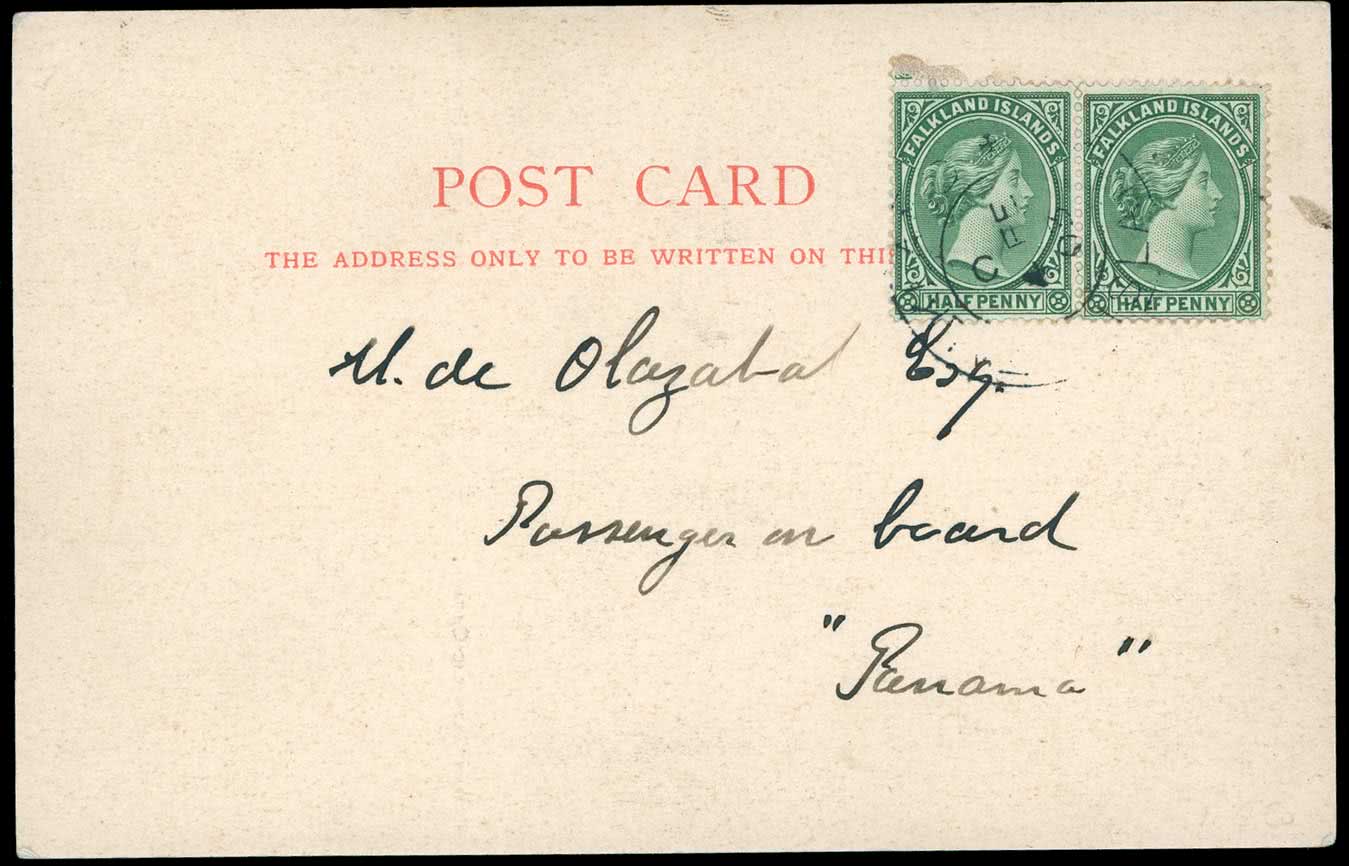 FALKLAND ISLANDS FALKLAND ISLANDS
HALFPENNY HALFPENNY
POST CARD
THE ADDRESS ONLY TO BE WRITTEN ON THI
M. de Olazabal Esq.
Passenger on board
"Panama"